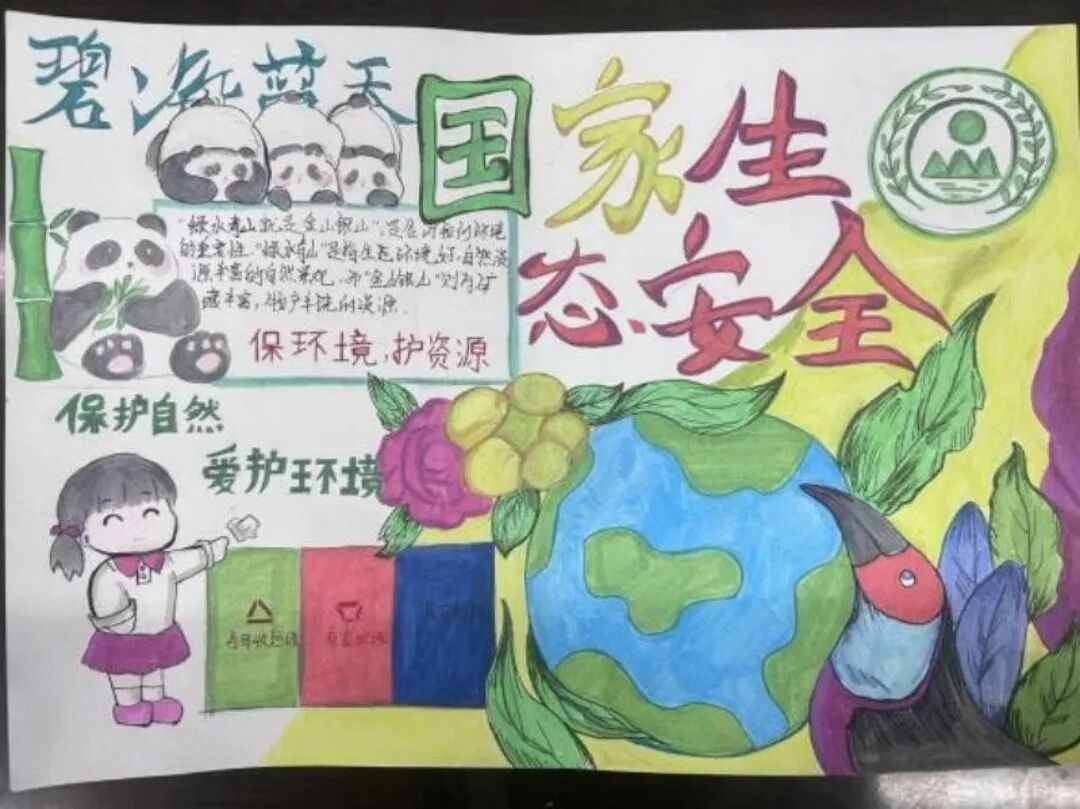 碧海蓝天
国家生
态安全
"绿水青山就是金山银山",是
的重要性."绿水青山"是指生态环境好,自然资
源丰富的自然景观,而"金山银山"则为矿
藏丰富,物产丰饶的资源.
保环境,护资源
保护自然
爱护环境
可回收垃圾
有害垃圾